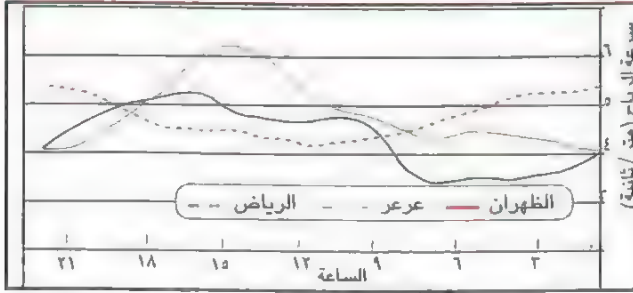 سرعة الرياح (متر/ثانية)
٦
٥
٤
٣
الظهران عرعر الرياض
٣ ٦ ٩ ١٢ ١٥ ١٨ ٢١
الساعة